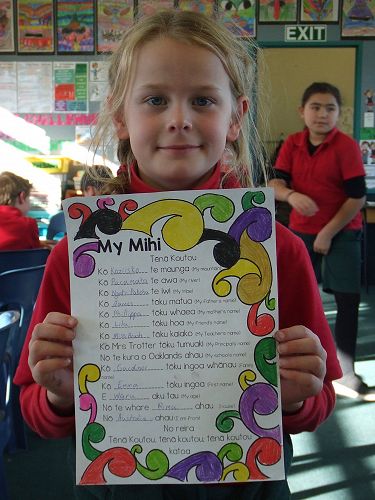 EXIT
My Mihi
Tena Koutou
Ko te maunga (My mountain)
Ko te awa (My river)
Ko te iwi (My tribe)
Ko James toku matua (My Father's name)
Ko Philippa toku whaea (My mother's name)
Ko toku hoa (My Friend's name)
Ko toku kaiako (My Teacher's name)
Ko Mrs Trotter toku tumuaki (My Principal's name)
No te kura o Oaklands ahau (My school's name)
Ko Gardner toku ingoa whōnau (Family name)
Ko Emma toku ingoa (First name)
E Waru aku tau (My age)
No te whare Rimu ahau (House)
No Australia ahau (I am from)
No reira
Tena Koutou, tena koutou, tena koutou
katoa